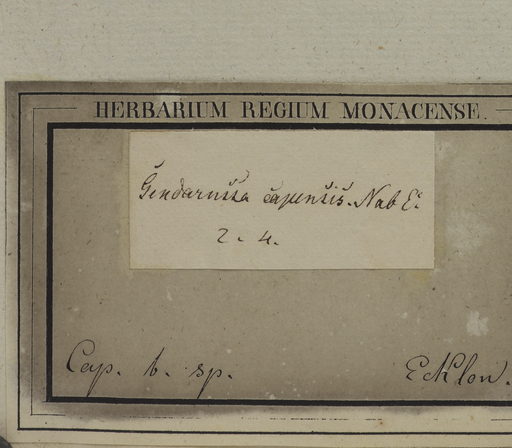 HERBARIUM REGIUM MONACENSE.
Gendarussa capensis. Nab E.
2. 4.
Cap. b. sp.
Ecklon.